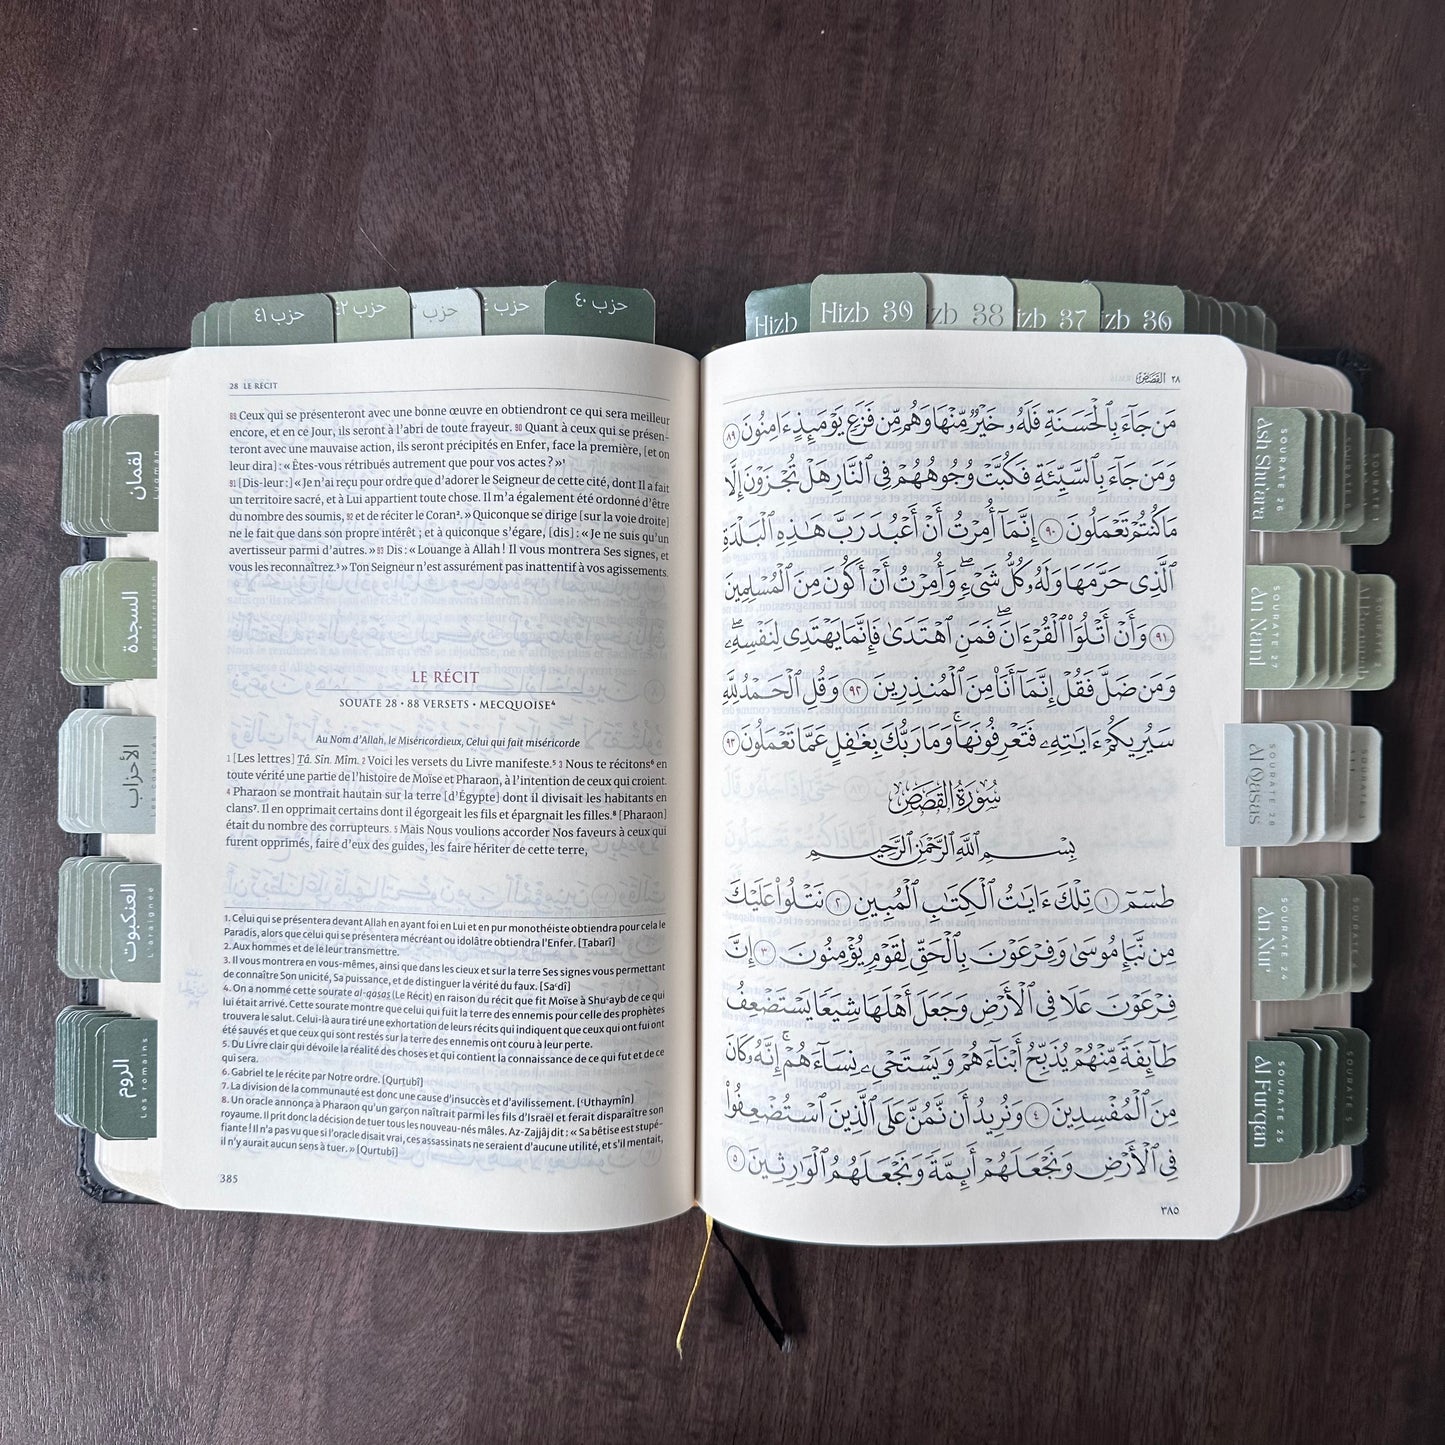 حزب ٤١
حزب
حزب
حزب
حزب ٤٠
Hizb
Hizb 39
zb 38
zb 37
zb 36
لقمان
Luqman
السجدة
La prosternation
الأحزاب
Les coalisés
العنكبوت
L'araignée
الروم
Les romains
28 LE RÉCIT
89 Ceux qui se présenteront avec une bonne œuvre en obtiendront ce qui sera meilleur
encore, et en ce Jour, ils seront à l'abri de toute frayeur. 90 Quant à ceux qui se présen-
teront avec une mauvaise action, ils seront précipités en Enfer, face la première, [et on
leur dira] : « Êtes-vous rétribués autrement que pour vos actes ? »¹
91 [Dis-leur :] « Je n'ai reçu pour ordre que d'adorer le Seigneur de cette cité, dont Il a fait
un territoire sacré, et à Lui appartient toute chose. Il m'a également été ordonné d'être
du nombre des soumis, 92 et de réciter le Coran². » Quiconque se dirige [sur la voie droite]
ne le fait que dans son propre intérêt ; et à quiconque s'égare, [dis] : « Je ne suis qu'un
avertisseur parmi d'autres. » 93 Dis : « Louange à Allah ! Il vous montrera Ses signes, et
vous les reconnaîtrez.³ » Ton Seigneur n'est assurément pas inattentif à vos agissements.
LE RÉCIT
SOUATE 28 • 88 VERSETS • MECQUOISE⁴
Au Nom d'Allah, le Miséricordieux, Celui qui fait miséricorde
1 [Les lettres] Tâ. Sîn. Mîm. 2 Voici les versets du Livre manifeste.⁵ 3 Nous te récitons⁶ en
toute vérité une partie de l'histoire de Moïse et Pharaon, à l'intention de ceux qui croient.
4 Pharaon se montrait hautain sur la terre [d'Égypte] dont il divisait les habitants en
clans⁷. Il en opprimait certains dont il égorgeait les fils et épargnait les filles.⁸ [Pharaon]
était du nombre des corrupteurs. 5 Mais Nous voulions accorder Nos faveurs à ceux qui
furent opprimés, faire d'eux des guides, les faire hériter de cette terre,
1. Celui qui se présentera devant Allah en ayant foi en Lui et en pur monothéiste obtiendra pour cela le
Paradis, alors que celui qui se présentera mécréant ou idolâtre obtiendra l'Enfer. [Tabarî]
2. Aux hommes et de le leur transmettre.
3. Il vous montrera en vous-mêmes, ainsi que dans les cieux et sur la terre Ses signes vous permettant
de connaître Son unicité, Sa puissance, et de distinguer la vérité du faux. [Saʿdî]
4. On a nommé cette sourate al-qasas (Le Récit) en raison du récit que fit Moïse à Shuʿayb de ce qui
lui était arrivé. Cette sourate montre que celui qui fuit la terre des ennemis pour celle des prophètes
trouvera le salut. Celui-là aura tiré une exhortation de leurs récits qui indiquent que ceux qui ont fui ont
été sauvés et que ceux qui sont restés sur la terre des ennemis ont couru à leur perte.
5. Du Livre clair qui dévoile la réalité des choses et qui contient la connaissance de ce qui fut et de ce
qui sera.
6. Gabriel te le récite par Notre ordre. [Qurtubî]
7. La division de la communauté est donc une cause d'insuccès et d'avilissement. [ʿUthaymîn]
8. Un oracle annonça à Pharaon qu'un garçon naîtrait parmi les fils d'Israël et ferait disparaître son
royaume. Il prit donc la décision de tuer tous les nouveau-nés mâles. Az-Zajjâj dit : « Sa bêtise est stupé-
fiante ! Il n'a pas vu que si l'oracle disait vrai, ces assassinats ne seraient d'aucune utilité, et s'il mentait,
il n'y aurait aucun sens à tuer. » [Qurtubî]
385
٢٨ القصص
مَن جَآءَ بِٱلْحَسَنَةِ فَلَهُۥ خَيْرٌ مِّنْهَا وَهُم مِّن فَزَعٍ يَوْمَئِذٍ ءَامِنُونَ ٨٩
وَمَن جَآءَ بِٱلسَّيِّئَةِ فَكُبَّتْ وُجُوهُهُمْ فِى ٱلنَّارِ هَلْ تُجْزَوْنَ إِلَّا
مَا كُنتُمْ تَعْمَلُونَ ٩٠ إِنَّمَآ أُمِرْتُ أَنْ أَعْبُدَ رَبَّ هَٰذِهِ ٱلْبَلْدَةِ
ٱلَّذِى حَرَّمَهَا وَلَهُۥ كُلُّ شَىْءٍ ۖ وَأُمِرْتُ أَنْ أَكُونَ مِنَ ٱلْمُسْلِمِينَ
٩١ وَأَنْ أَتْلُوَا۟ ٱلْقُرْءَانَ ۖ فَمَنِ ٱهْتَدَىٰ فَإِنَّمَا يَهْتَدِى لِنَفْسِهِۦ ۖ
وَمَن ضَلَّ فَقُلْ إِنَّمَآ أَنَا۠ مِنَ ٱلْمُنذِرِينَ ٩٢ وَقُلِ ٱلْحَمْدُ لِلَّهِ
سَيُرِيكُمْ ءَايَٰتِهِۦ فَتَعْرِفُونَهَا ۚ وَمَا رَبُّكَ بِغَٰفِلٍ عَمَّا تَعْمَلُونَ ٩٣
سُورَةُ القَصَصِ
بِسْمِ ٱللَّهِ ٱلرَّحْمَٰنِ ٱلرَّحِيمِ
طسٓمٓ ١ تِلْكَ ءَايَٰتُ ٱلْكِتَٰبِ ٱلْمُبِينِ ٢ نَتْلُوا۟ عَلَيْكَ
مِن نَّبَإِ مُوسَىٰ وَفِرْعَوْنَ بِٱلْحَقِّ لِقَوْمٍ يُؤْمِنُونَ ٣ إِنَّ
فِرْعَوْنَ عَلَا فِى ٱلْأَرْضِ وَجَعَلَ أَهْلَهَا شِيَعًا يَسْتَضْعِفُ
طَآئِفَةً مِّنْهُمْ يُذَبِّحُ أَبْنَآءَهُمْ وَيَسْتَحْىِۦ نِسَآءَهُمْ ۚ إِنَّهُۥ كَانَ
مِنَ ٱلْمُفْسِدِينَ ٤ وَنُرِيدُ أَن نَّمُنَّ عَلَى ٱلَّذِينَ ٱسْتُضْعِفُوا۟
فِى ٱلْأَرْضِ وَنَجْعَلَهُمْ أَئِمَّةً وَنَجْعَلَهُمُ ٱلْوَٰرِثِينَ ٥
٣٨٥
SOURATE 26
Ash Shu'ara
SOURATE 1
SOURATE 27
An Naml
SOURATE 2
Al Baqarah
SOURATE 28
Al Qasas
SOURATE 3
SOURATE 24
An Nur
SOURATE 25
Al Furqan
SOURATE 5